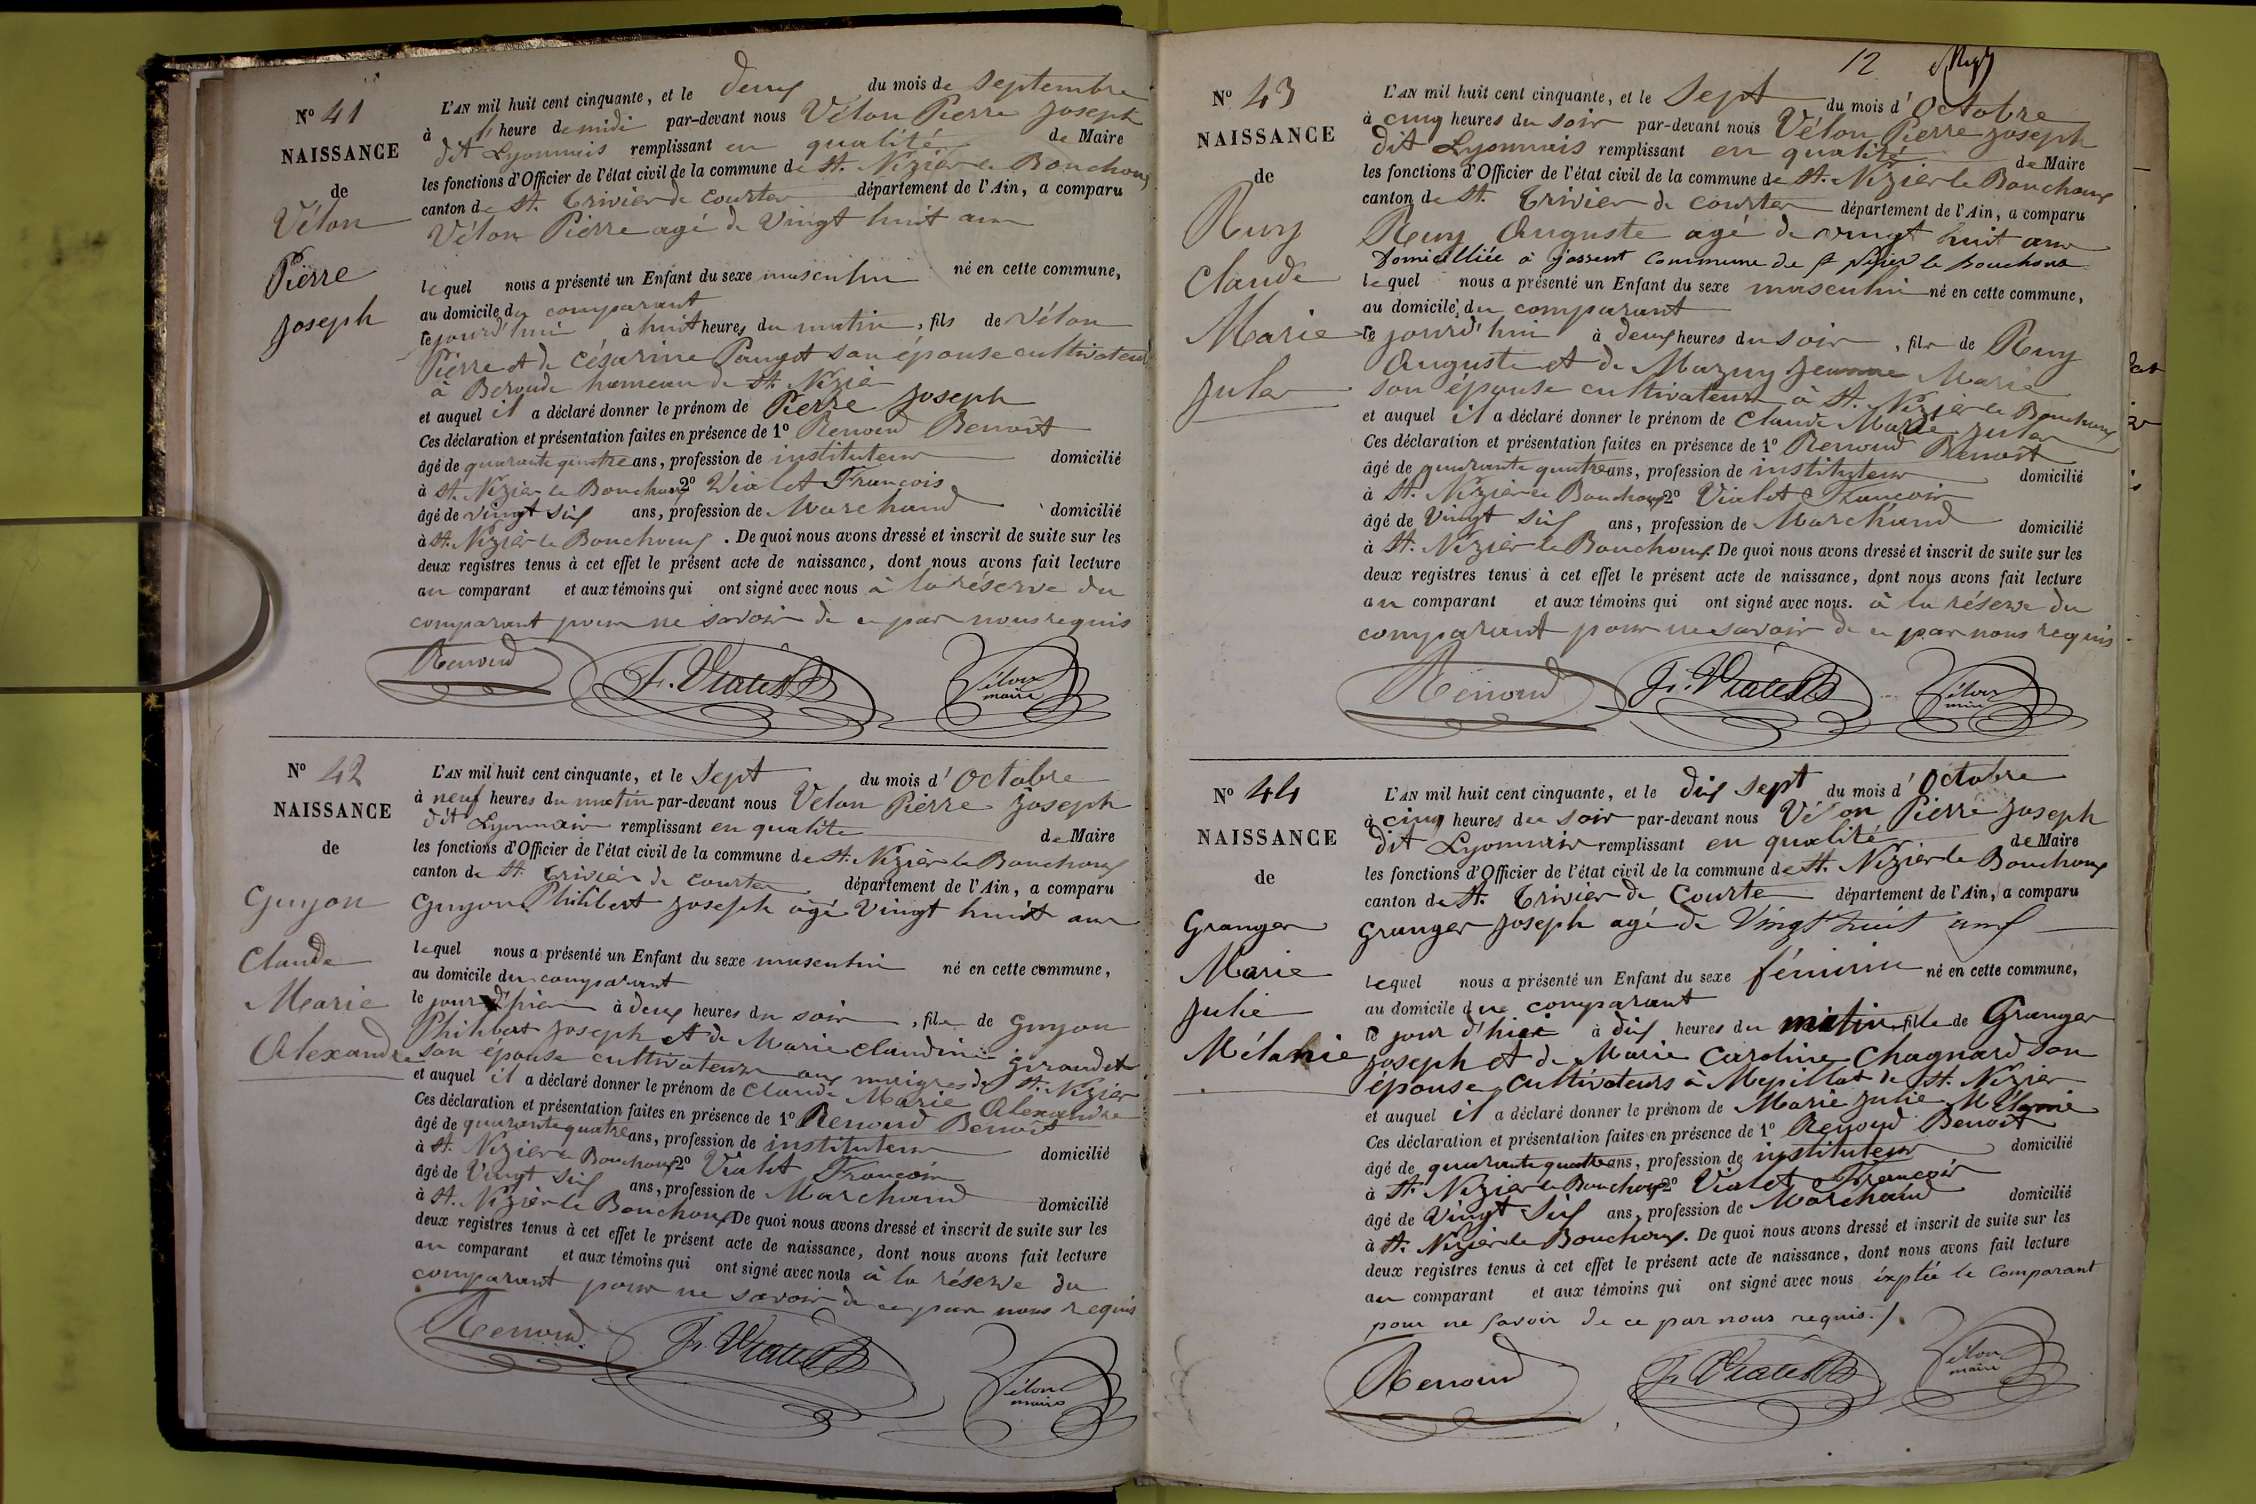 N° 41
NAISSANCE
de
Vélon
Pierre
Joseph
L'AN mil huit cent cinquante, et le deux du mois de septembre
à l'heure de midi par-devant nous Vélon Pierre Joseph
dit Lyonnais remplissant en qualité de Maire
les fonctions d'Officier de l'état civil de la commune de St. Nizier le Bouchoux
canton de St. Trivier de Courtes département de l'Ain, a comparu
Vélon Pierre agé de vingt huit ans
lequel nous a présenté un Enfant du sexe masculin né en cette commune,
au domicile du comparant
le jourd'hui à huit heures du matin, fils de Vélon
Pierre et de Césarine Pauget son épouse cultivateurs
à Beroude hameau de St. Nizié
et auquel il a déclaré donner le prénom de Pierre Joseph
Ces déclaration et présentation faites en présence de 1° Renoud Benoît
âgé de quarante quatre ans, profession de instituteur domicilié
à St. Nizier le Bouchoux 2° Vialet François
âgé de vingt six ans, profession de Marchand domicilié
à St. Nizier le Bouchoux. De quoi nous avons dressé et inscrit de suite sur les
deux registres tenus à cet effet le présent acte de naissance, dont nous avons fait lecture
au comparant et aux témoins qui ont signé avec nous à la réserve du
comparant pour ne savoir de ce par nous requis
Renoud F. Vialet Vélon maire
N° 42
NAISSANCE
de
Guyon
Claude
Marie
Alexandre
L'AN mil huit cent cinquante, et le sept du mois d'Octobre
à neuf heures du matin par-devant nous Vélon Pierre Joseph
dit Lyonnais remplissant en qualité de Maire
les fonctions d'Officier de l'état civil de la commune de St. Nizier le Bouchoux
canton de St. Trivier de Courtes département de l'Ain, a comparu
Guyon Philibert Joseph agé vingt huit ans
lequel nous a présenté un Enfant du sexe masculin né en cette commune,
au domicile du comparant
le jour d'hier à deux heures du soir, fils de Guyon
Philibert Joseph et de Marie Claudine Girandet
son épouse cultivateurs aux maigres de St. Nizier
et auquel il a déclaré donner le prénom de Claude Marie Alexandre
Ces déclaration et présentation faites en présence de 1° Renoud Benoît
âgé de quarante quatre ans, profession de instituteur domicilié
à St. Nizier le Bouchoux 2° Vialet François
âgé de vingt six ans, profession de Marchand domicilié
à St. Nizier le Bouchoux De quoi nous avons dressé et inscrit de suite sur les
deux registres tenus à cet effet le présent acte de naissance, dont nous avons fait lecture
au comparant et aux témoins qui ont signé avec nous à la réserve du
comparant pour ne savoir de ce par nous requis
Renoud F. Vialet Vélon maire
12
N° 43
NAISSANCE
de
Ruy
Claude
Marie
Jules
L'AN mil huit cent cinquante, et le sept du mois d'Octobre
à cinq heures du soir par-devant nous Vélon Pierre Joseph
dit Lyonnais remplissant en qualité de Maire
les fonctions d'Officier de l'état civil de la commune de St. Nizier le Bouchoux
canton de St. Trivier de Courtes département de l'Ain, a comparu
Ruy Auguste agé de vingt huit ans
Domicilliée à Jassent Commune de St Nizier le Bouchoux
lequel nous a présenté un Enfant du sexe masculin né en cette commune,
au domicile du comparant
le jourd'hui à deux heures du soir, fils de Ruy
Auguste et de Mazuy Jeanne Marie
son épouse cultivateurs à St. Nizier le Bouchoux
et auquel il a déclaré donner le prénom de Claude Marie Jules
Ces déclaration et présentation faites en présence de 1° Renoud Benoît
âgé de quarante quatre ans, profession de instituteur domicilié
à St. Nizier le Bouchoux 2° Vialet François
âgé de vingt six ans, profession de Marchand domicilié
à St. Nizier le Bouchoux. De quoi nous avons dressé et inscrit de suite sur les
deux registres tenus à cet effet le présent acte de naissance, dont nous avons fait lecture
au comparant et aux témoins qui ont signé avec nous. à la réserve du
comparant pour ne savoir de ce par nous requis
Renoud F. Vialet Vélon maire
N° 44
NAISSANCE
de
Granger
Marie
Julie
Mélanie
L'AN mil huit cent cinquante, et le dix sept du mois d'Octobre
à cinq heures du soir par-devant nous Vélon Pierre Joseph
dit Lyonnais remplissant en qualité de Maire
les fonctions d'Officier de l'état civil de la commune de St. Nizier le Bouchoux
canton de St. Trivier de Courte département de l'Ain, a comparu
Granger Joseph agé de Vingt huit ans
lequel nous a présenté un Enfant du sexe féminin né en cette commune,
au domicile due comparant
le jour d'hier à dix heures du matin fille de Granger
Joseph et de Marie Caroline Chagnard son
épouse, cultivateurs à Mepillat de St. Nizier
et auquel il a déclaré donner le prénom de Marie Julie Mélanie
Ces déclaration et présentation faites en présence de 1° Renoud Benoît
âgé de quarante quatre ans, profession de instituteur domicilié
à St. Nizier le Bouchoux 2° Vialet François
âgé de vingt six ans, profession de Marchand domicilié
à St. Nizier le Bouchoux. De quoi nous avons dressé et inscrit de suite sur les
deux registres tenus à cet effet le présent acte de naissance, dont nous avons fait lecture
au comparant et aux témoins qui ont signé avec nous éxptée le Comparant
pour ne savoir de ce par nous requis./.
Renoud F. Vialet Vélon maire